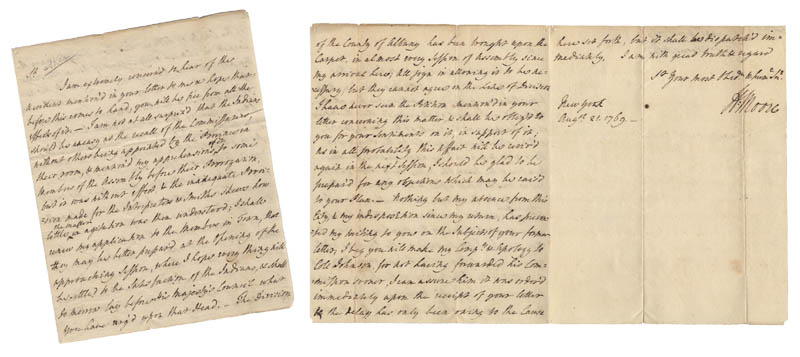 Sr
I am extremely concern'd to hear of the
Accident mention'd in your letter to me & hope that
before this comes to hand, you will be free from all the
effects of it — I am not at all surpriz'd that the Indians
should be uneasy at the recall of the Commissaries,
without others being appointed by the Province in
their room, & mention'd my apprehensions of it to some
Members of the Assembly before their Prorogation,
but it was without effect & the inadequate Provi-
sion made for the Interpreters & Smiths shews how
little the matter in agitation was then understood; I shall
renew my application to the Members in Town, that
they may be better prepared at the Opening of the
approaching Session, where I hope every thing will
be settled to the Satisfaction of the Indians, & shall
to morrow lay before His Majesty's Council what
you have urg'd upon that Head. — The Division
of the County of Albany has been brought upon the
Carpet, in almost every Session of Assembly since
my arrival here; all join in allowing it to be ne-
cessary, but they cannot agree in the Lines of Division
I have never seen the Petition mention'd in your
letter concerning this matter & shall be obliged to
you for your Sentiments on it, in support of it;
as in all probability this affair will be reviv'd
again in the next Session, I should be glad to be
prepared for any objections which may be rais'd
to your Plan. — Nothing but my absence from this
City & my indisposition since my return, has preven-
ted my writing to you on the Subject of your former
letter, I beg you will make my Compts. & Apology to
Col: Johnson, for not having forwarded his Com-
mission sooner, I can assure him it was order'd
immediately upon the receipt of your letter
& the delay has only been owing to the Cause
here set forth, but it shall be dispatch'd im-
mediately. I am with great truth & regard
Sr Your most Obedt. & hum: Sert.
HMoore
New York
Augst. 21. 1769 —